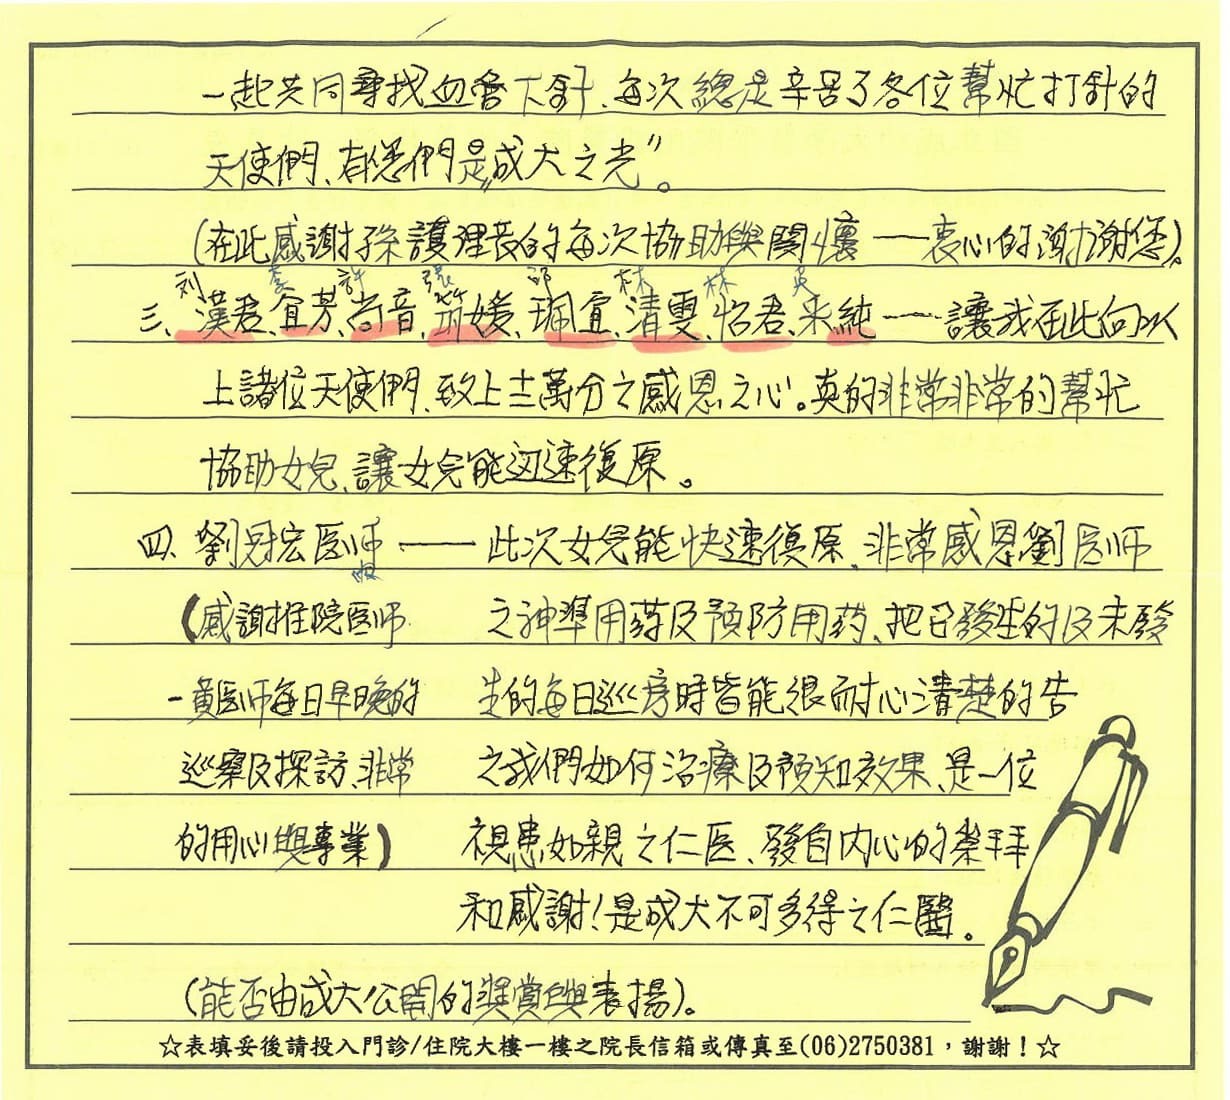 一起共同尋找血管下針、每次總是辛苦了各位幫忙打針的
天使們、有您們是〝成大之光〞。
(在此感謝孫護理長的每次協助與關懷——衷心的謝謝您)。
刘 李 許 張 邱 林 林 吳
三、漢君、宜芳、尚音、筑媛、珮宜、清雯、怡君、采純——讓我在此向以
上諸位天使們、致上十二萬分之感恩之心。真的非常非常的幫忙
協助女兒、讓女兒能迅速復原。
四、劉冠宏医师——此次女兒能快速復原、非常感恩劉医师
(感謝住院医师 之神準用药及預防用药、把已發生的及未發
-黃医师每日早晚的 生的每日巡房時皆能很耐心清楚的告
巡察及探訪、非常 之我們如何治療及預知效果、是一位
的用心與專業) 視患如親之仁医、發自內心的崇拜
和感謝!是成大不可多得之仁醫。
(能否由成大公開的獎賞與表揚)。
☆表填妥後請投入門診/住院大樓一樓之院長信箱或傳真至(06)2750381，謝謝！☆